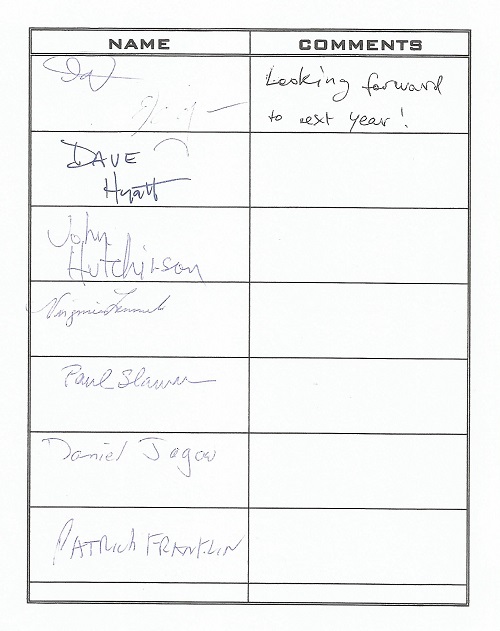 NAME COMMENTS
Looking forward
to next year!
DAVE
Hyatt
John
Hutchinson
Virginia
Paul
Daniel Jagow
PATRICK FRANKLIN